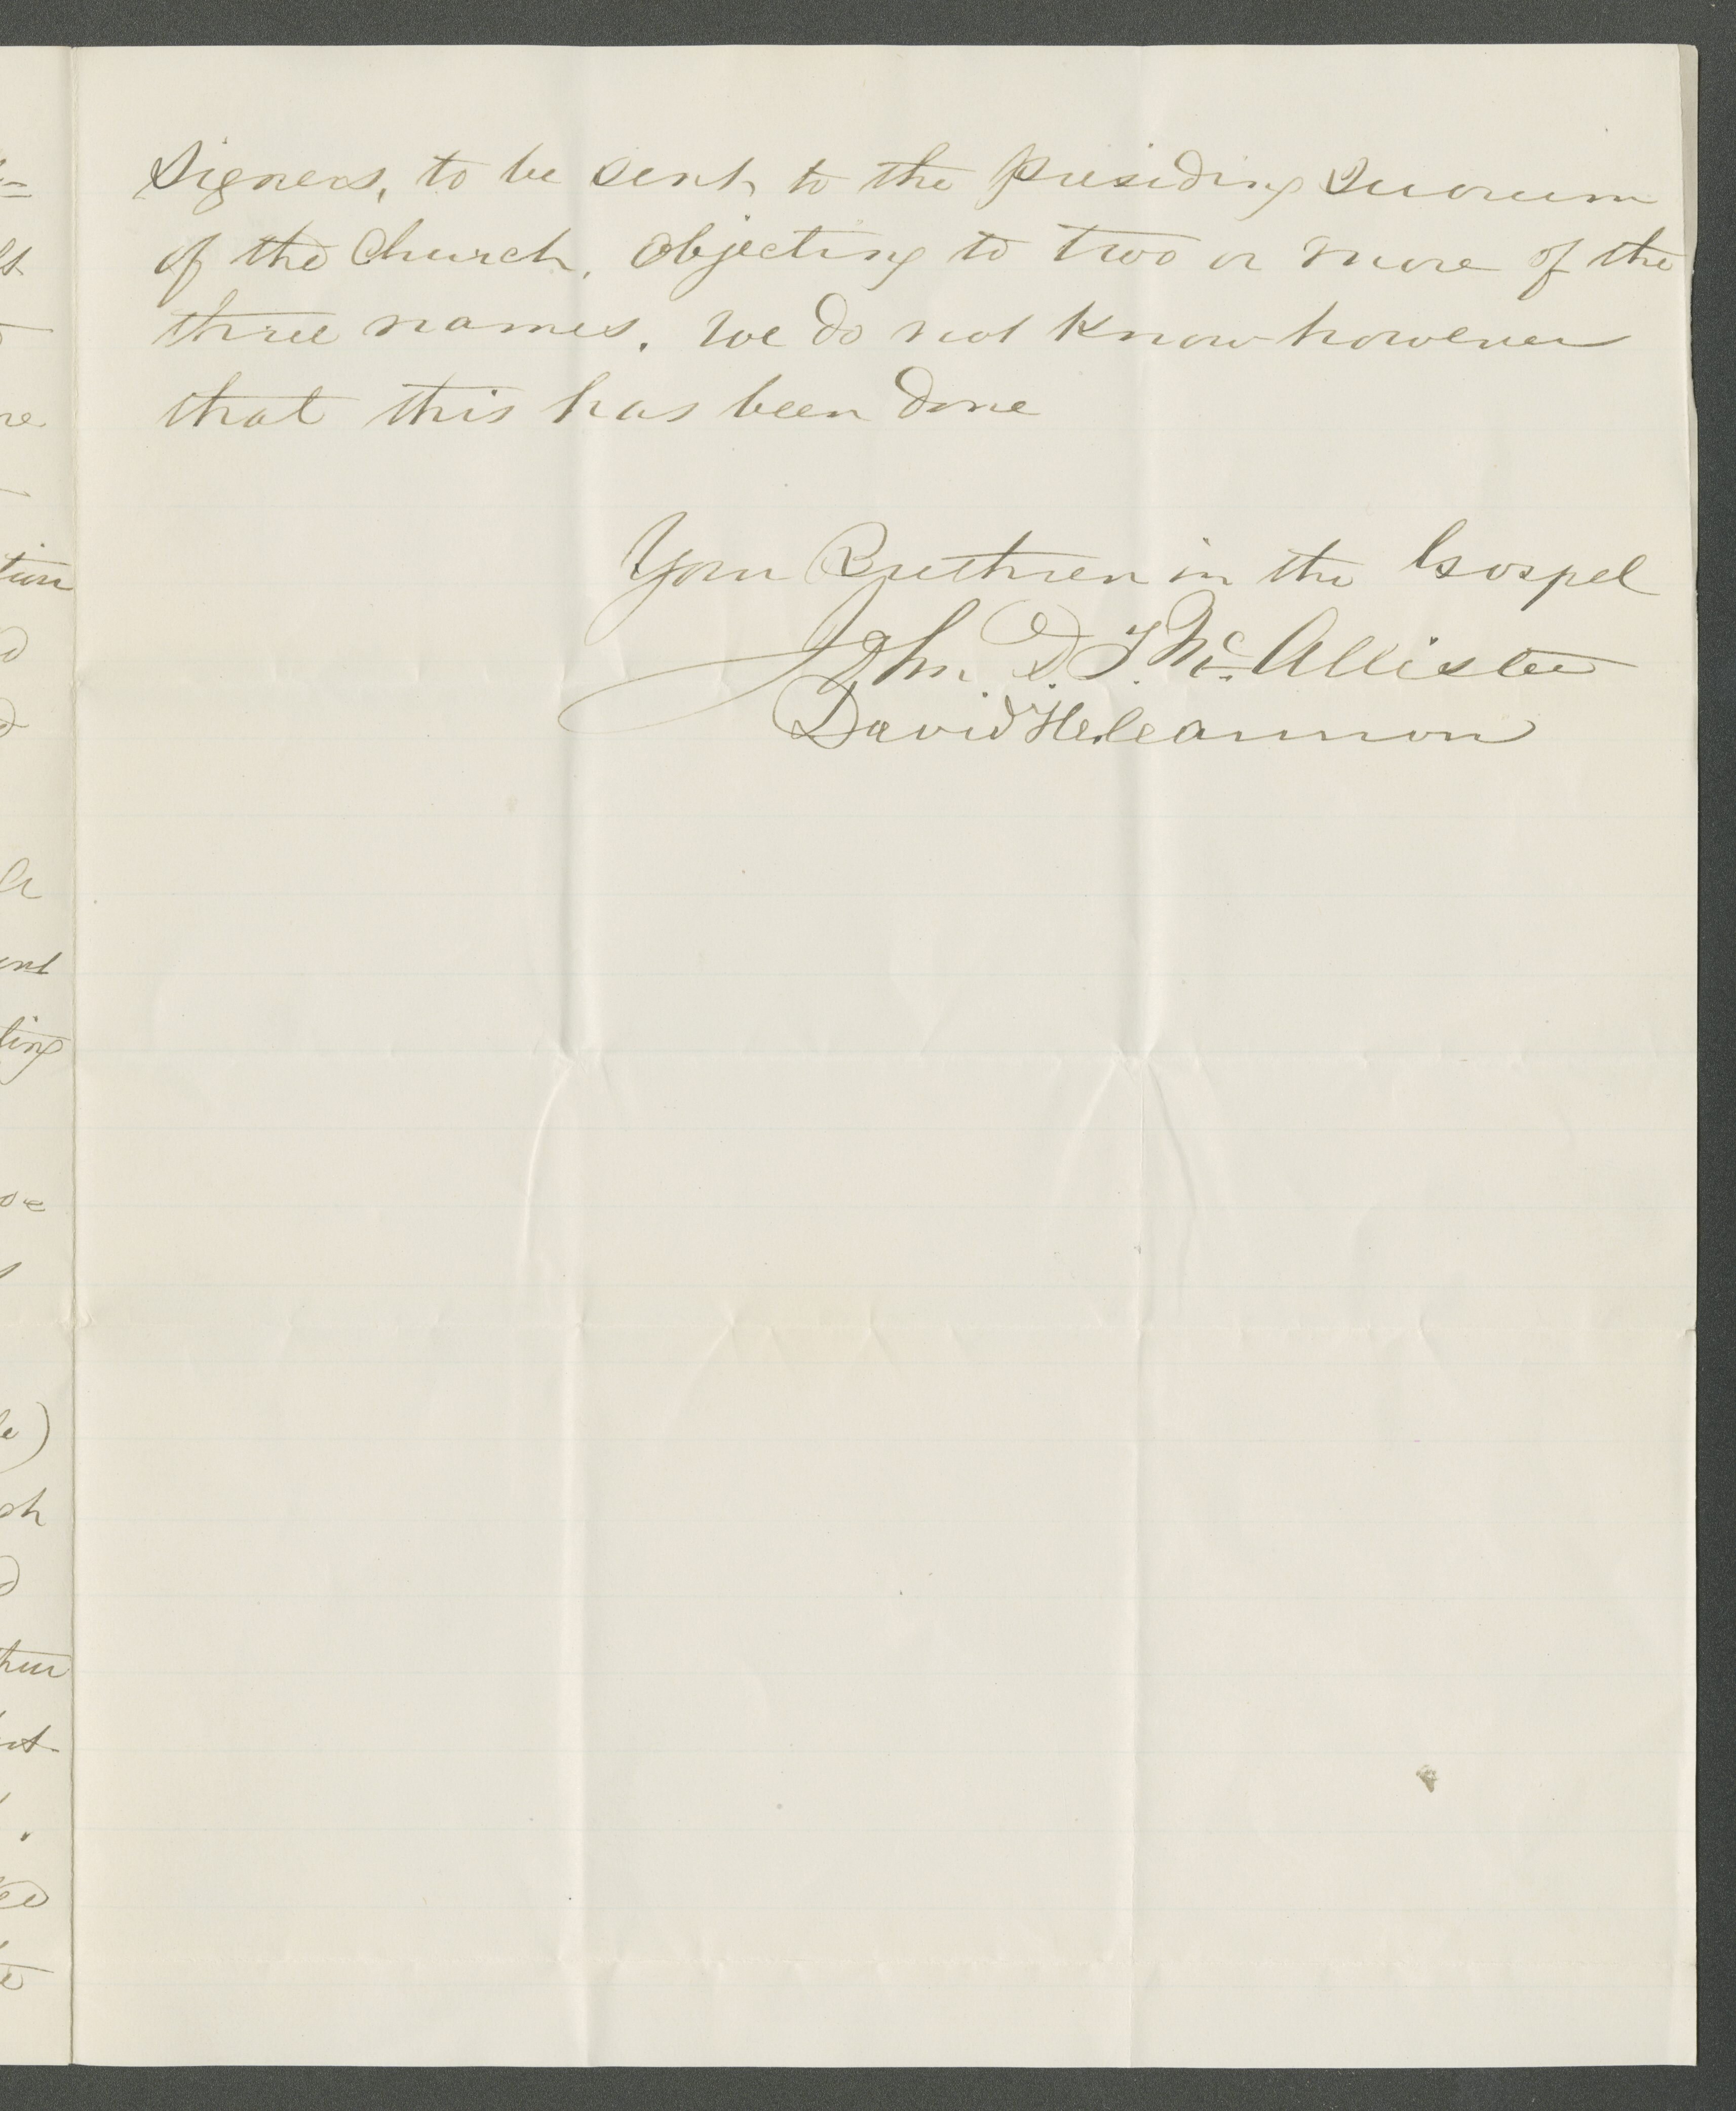 Signers, to be sent, to the Presiding Quorum
of the Church, Objecting to two or more of the
three names. We do not Know however
that this has been done
Your Brethren in the Gospel
John D. T. McAllister
David H. Cannon
tion
ting